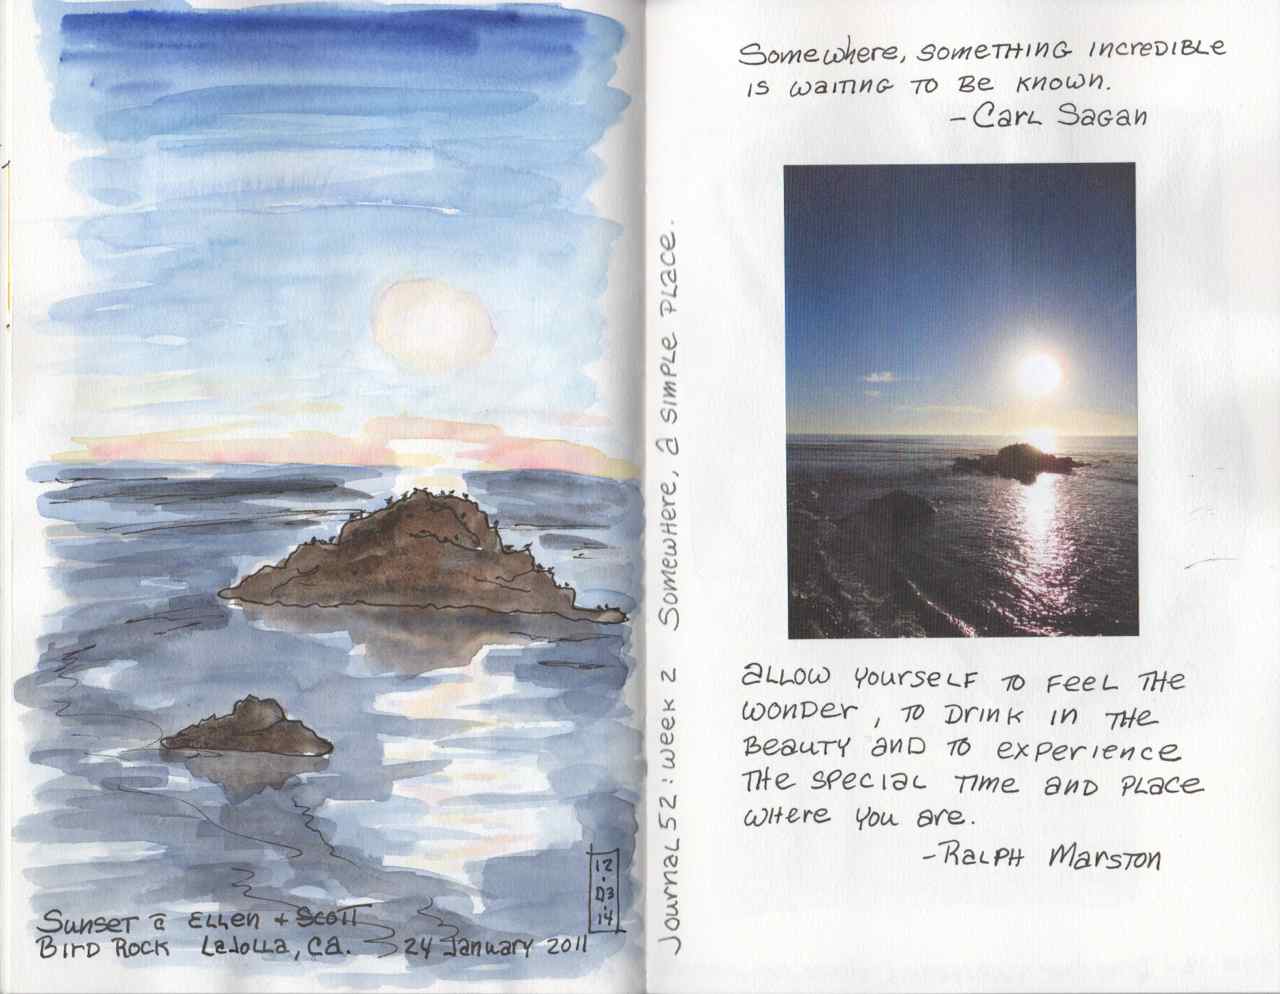 Sunset @ Ellen + Scott
Bird Rock LaJolla, CA. 24 January 2011
12
.
03
.
14
Journal 52: Week 2 Somewhere, a simple place.
Somewhere, something incredible
is waiting to be known.
-Carl Sagan
Allow yourself to feel the
wonder, to drink in the
beauty and to experience
the special time and place
where you are.
-Ralph Marston